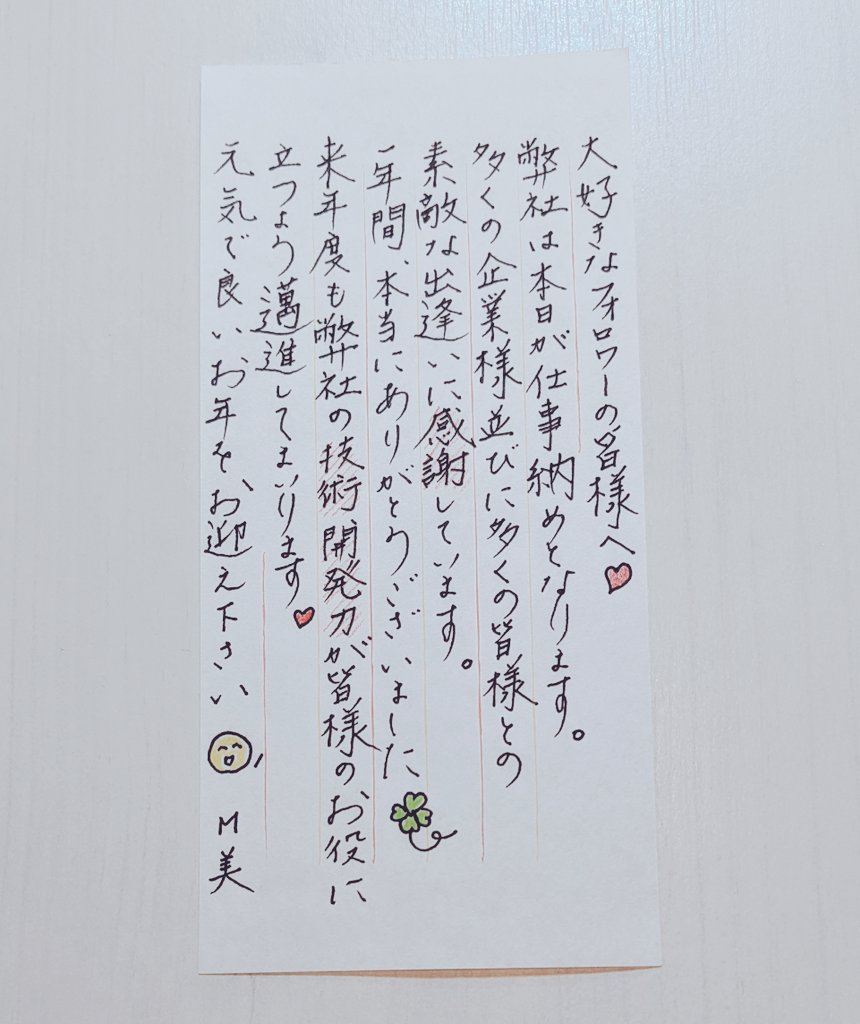 大好きなフォロワーの皆様へ
弊社は本日が仕事納めとなります。
多くの企業様並びに多くの皆様との
素敵な出逢いに感謝しています。
一年間、本当にありがとうございました
来年度も弊社の技術開発力が皆様のお役に
立つよう邁進してまいります
元気で良いお年を、お迎え下さい
M美